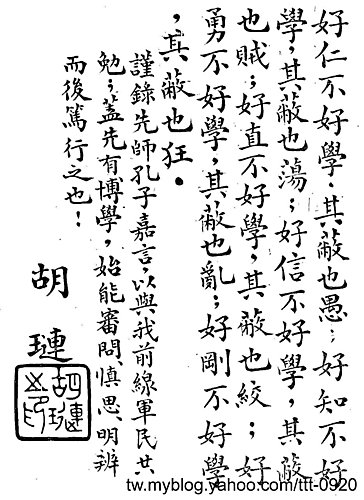 好仁不好學，其蔽也愚；好知不好
學，其蔽也蕩；好信不好學，其蔽
也賊；好直不好學，其蔽也絞；好
勇不好學，其蔽也亂；好剛不好學
，其蔽也狂。
謹錄先師孔子嘉言，以與我前線軍民共
勉；蓋先有博學，始能審問、慎思、明辨
而後篤行之也！
胡璉
胡璉
tw.myblog.yahoo.com/ttt-0920